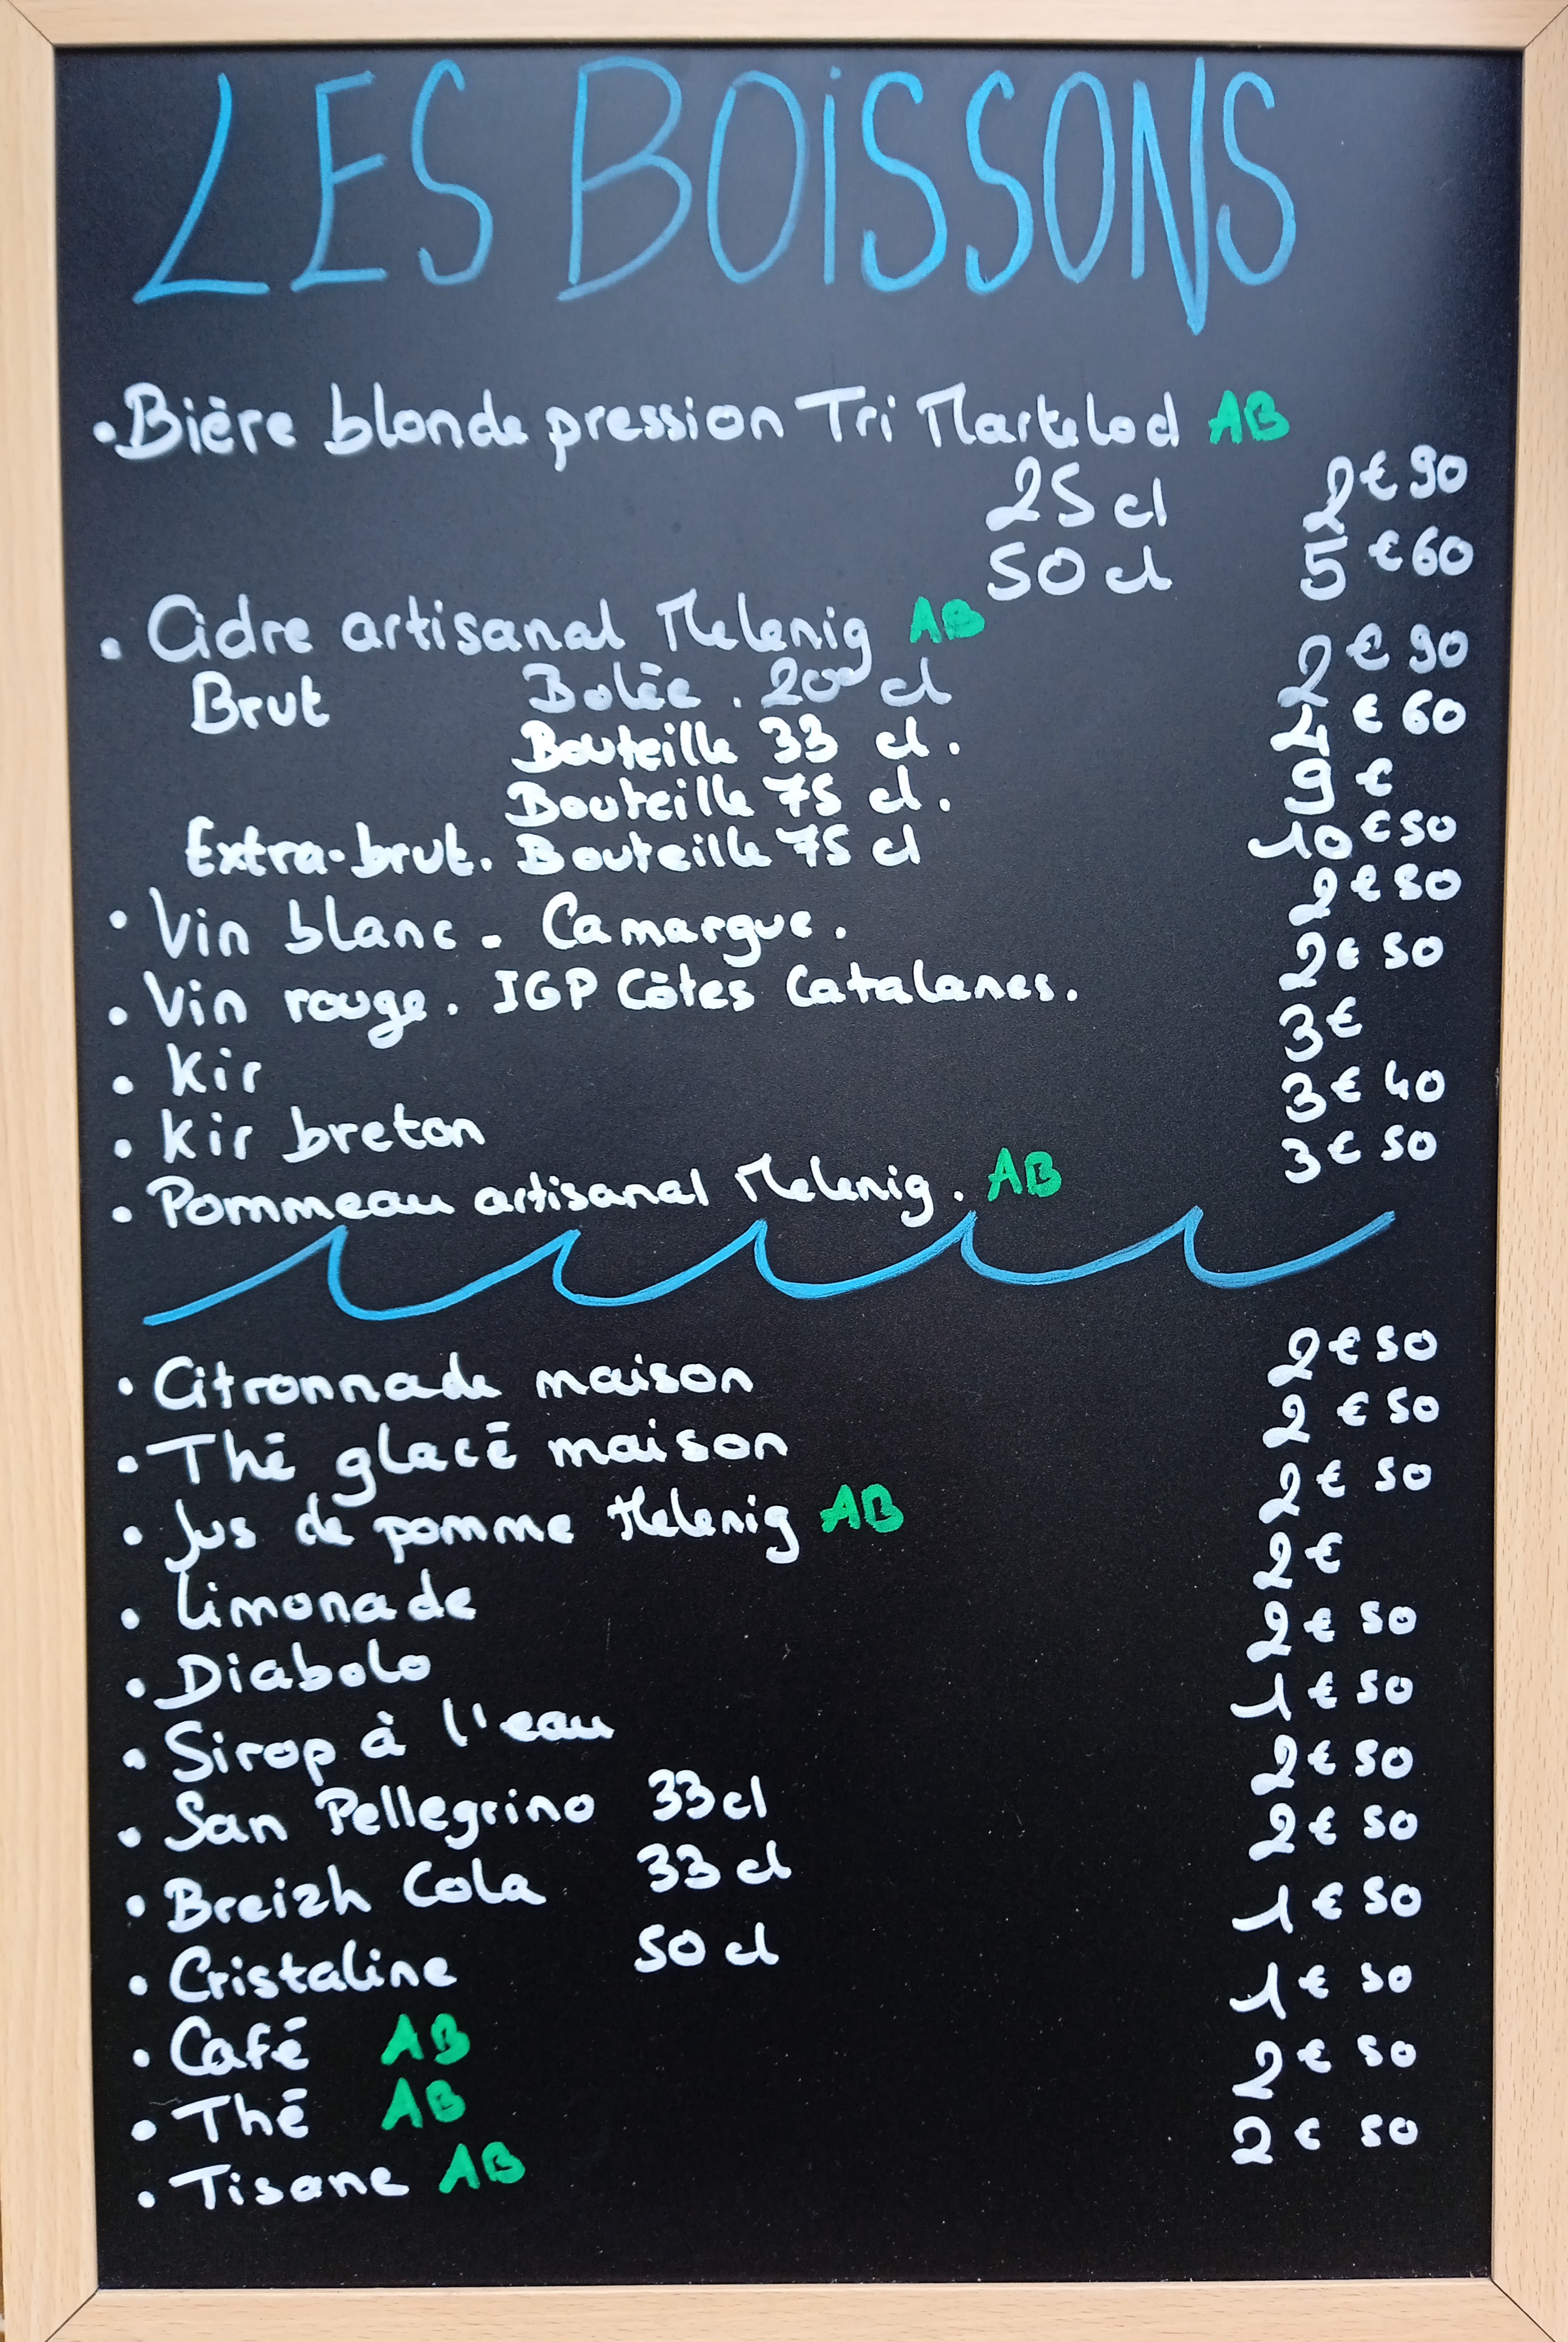 LES BOISSONS
• Bière blonde pression Tri Martelod AB
25 cl 2€90
50 cl 5€60
• Cidre artisanal Melenig AB
Brut Bolée . 20 cl 2€90
Bouteille 33 cl. 4€60
Bouteille 75 cl. 9€
Extra-brut. Bouteille 75 cl 10€50
• Vin blanc - Camargue. 2€50
• Vin rouge. IGP Côtes Catalanes. 2€50
• Kir 3€
• Kir breton 3€40
• Pommeau artisanal Melenig. AB 3€50
• Citronnade maison 2€50
• Thé glacé maison 2€50
• Jus de pomme Melenig AB 2€50
• Limonade 2€
• Diabolo 2€50
• Sirop à l'eau 1€50
• San Pellegrino 33cl 2€50
• Breizh Cola 33cl 2€50
• Cristaline 50 cl 1€50
• Café AB 1€50
• Thé AB 2€50
• Tisane AB 2€50